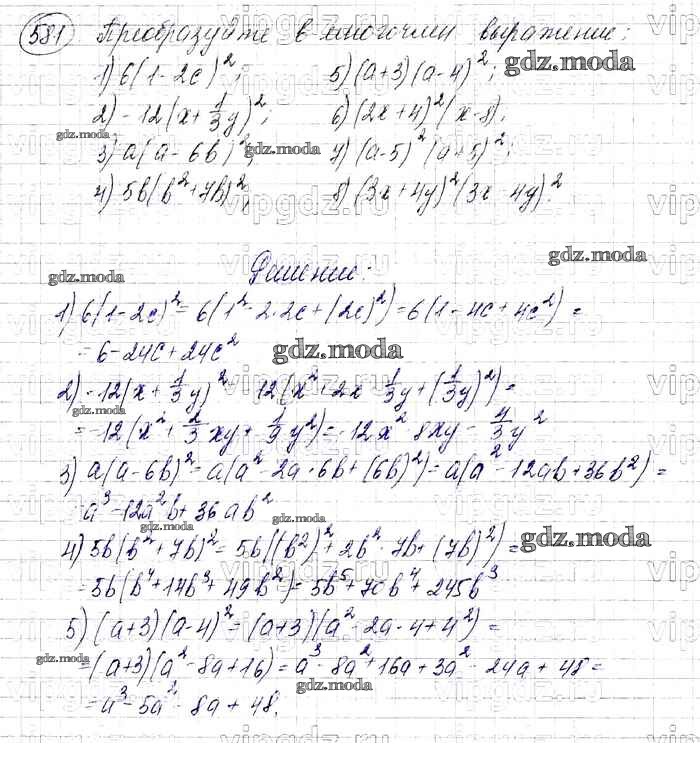 581 Преобразуйте в многочлен выражение:
1) 6(1-2c)²; 5) (a+3)(a-4)²;
2) -12(x+1/3y)²; 6) (2x+4)²(x-8);
3) a(a-6b)²; 7) (a-5)²(a+5)²;
4) 5b(b²+7b)²; 8) (3x+4y)²(3x-4y)².
Решение:
1) 6(1-2c)²=6(1²-2·2c+(2c)²)=6(1-4c+4c²)=
=6-24c+24c²
2) -12(x+1/3y)² 12(x²+2x 1/3y+(1/3y)²)=
=-12(x²+2/3xy+1/9y²)=-12x²-8xy-4/3y²
3) a(a-6b)²=a(a²-2a·6b+(6b)²)=a(a²-12ab+36b²)=
=a³-12a²b+36ab²
4) 5b(b²+7b)²=5b((b²)²+2b²·7b+(7b)²)=
=5b(b⁴+14b³+49b²)=5b⁵+70b⁴+245b³
5) (a+3)(a-4)²=(a+3)(a²-2a·4+4²)=
=(a+3)(a²-8a+16)=a³-8a²+16a+3a²-24a+48=
=a³-5a²-8a+48;
gdz.moda
vipgdz.ru